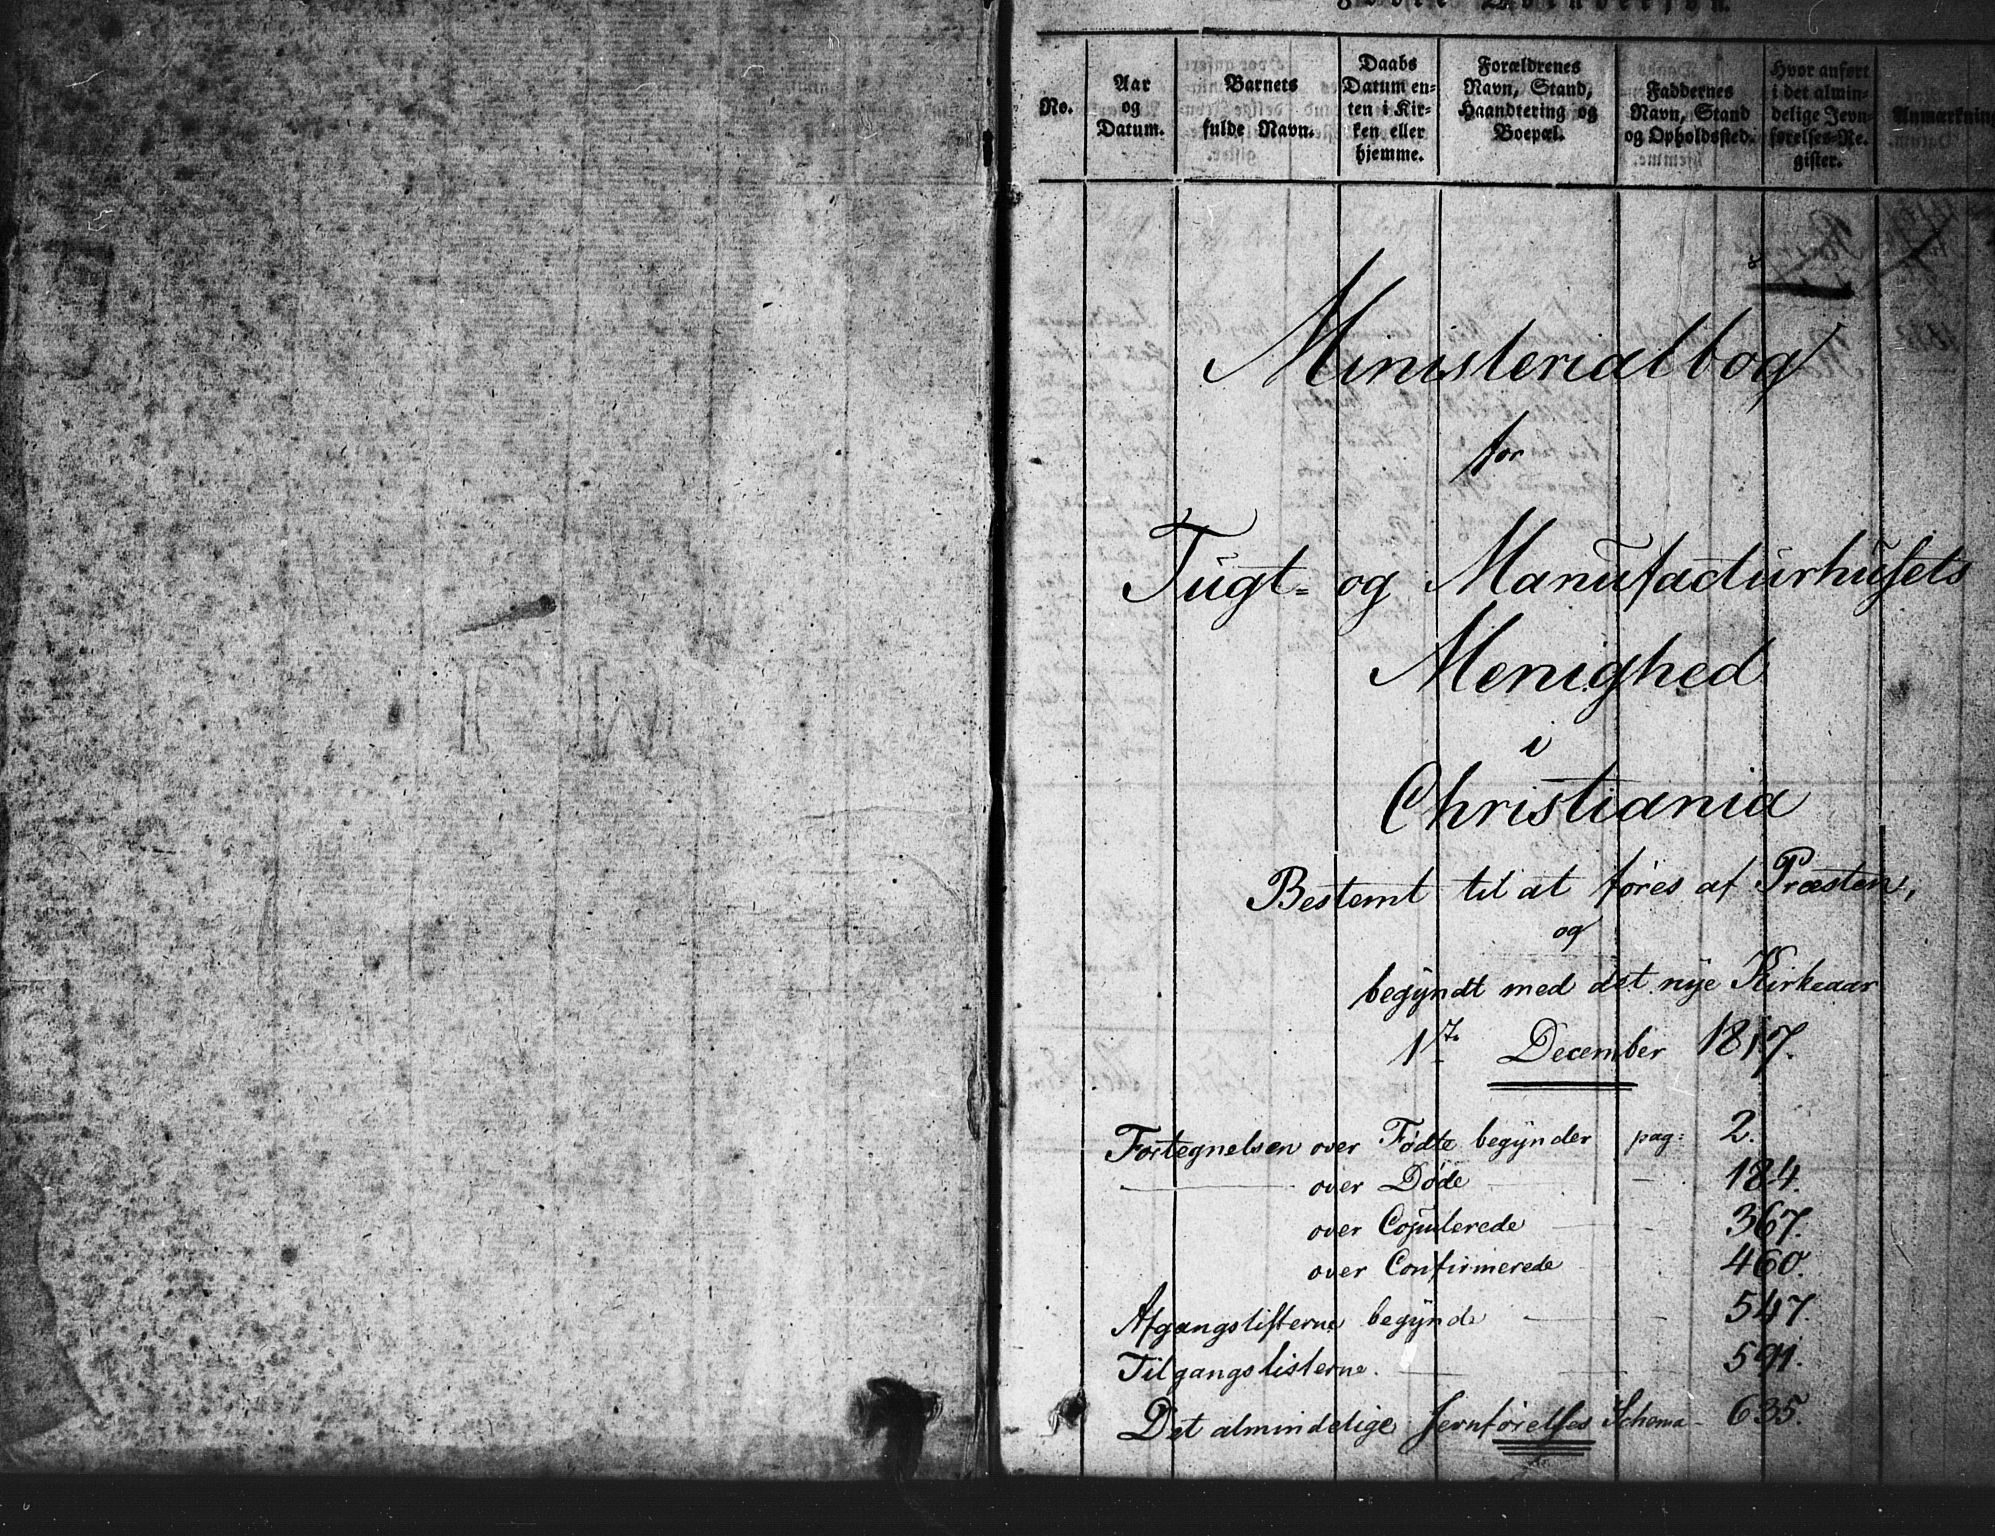 No.
Aar
og
Datum.
Barnets
fulde Navn.
Daabs
Datum en-
ten i Kir-
ken eller
hjemme.
Forældrenes
Navn, Stand,
Haandtering og
Boepæl.
Faddernes
Navn, Stand
og Opholdssted.
Hvor anført
i det almin-
delige Jevn-
førelses-Re-
gister.
Anmærkning
Ministerialbog
for
Tugt- og Manufacturhusets
Menighed
i
Christiania
Bestemt til at føres af Præsten,
og
begyndt med det nye Kirkeaar
1te December 1817.
Fortegnelsen over Fødte begynder pag: 2.
over Døde — 184.
over Copulerede — 367.
over Confirmerede 460.
Afgangslisterne begynde — 547.
Tilgangslisterne. — 591.
Det almindelige Jevnførelses Schema - 635.